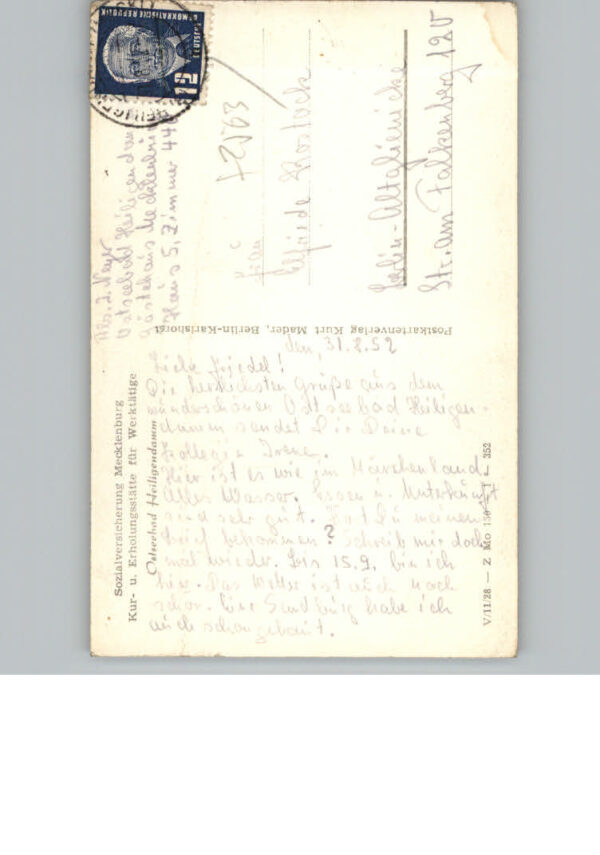 Sozialversicherung Mecklenburg
Kur- u. Erholungsstätte für Werktätige
Ostseebad Heiligendamm
den, 31.8.52
Liebe Friedel!
Die herzlichsten Grüße aus dem
wunderschönen Ostseebad Heiligen-
damm sendet Dir Deine
Kollegin Irene.
Hier ist es wie im Märchenland
Alles Wasser. Essen u. Unterkunft
sind sehr gut. Hast Du meinen
Brief bekommen? Schreib mir doch
mal wieder. Bis 15.9. bin ich
hier. Das Wetter ist auch noch
schön. Eine Sandburg habe ich
auch schon gebaut.
V/11/28 — Z. Mo 352
Postkartenverlag Kurt Mader, Berlin-Karlshorst
Abs. I. Meyer
Ostseebad Heiligendamm
Gästehaus Mecklenburg
Haus 5, Zimmer 44
DEUTSCHE
DEMOKRATISCHE REPUBLIK
12
Frau
Elfriede Rostock
Berlin-Altglienicke
Str. am Falkenberg 120